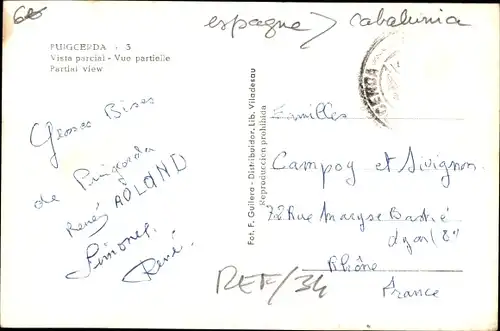 6€
espagne > cabalunia
PUIGCERDA - 3
Vista parcial - Vue partielle
Partial view
Grosses Bises
de Puigcerda
Renée ROLAND
Simone
René
Fot. F. Gullera - Distribuidor. Lib. Viladesau
Reproduccion prohibida
CERDA
Familles
Campoy et Sivignon
72 Rue Maryse Bastié
Lyon (8e)
Rhône
France
REF/34